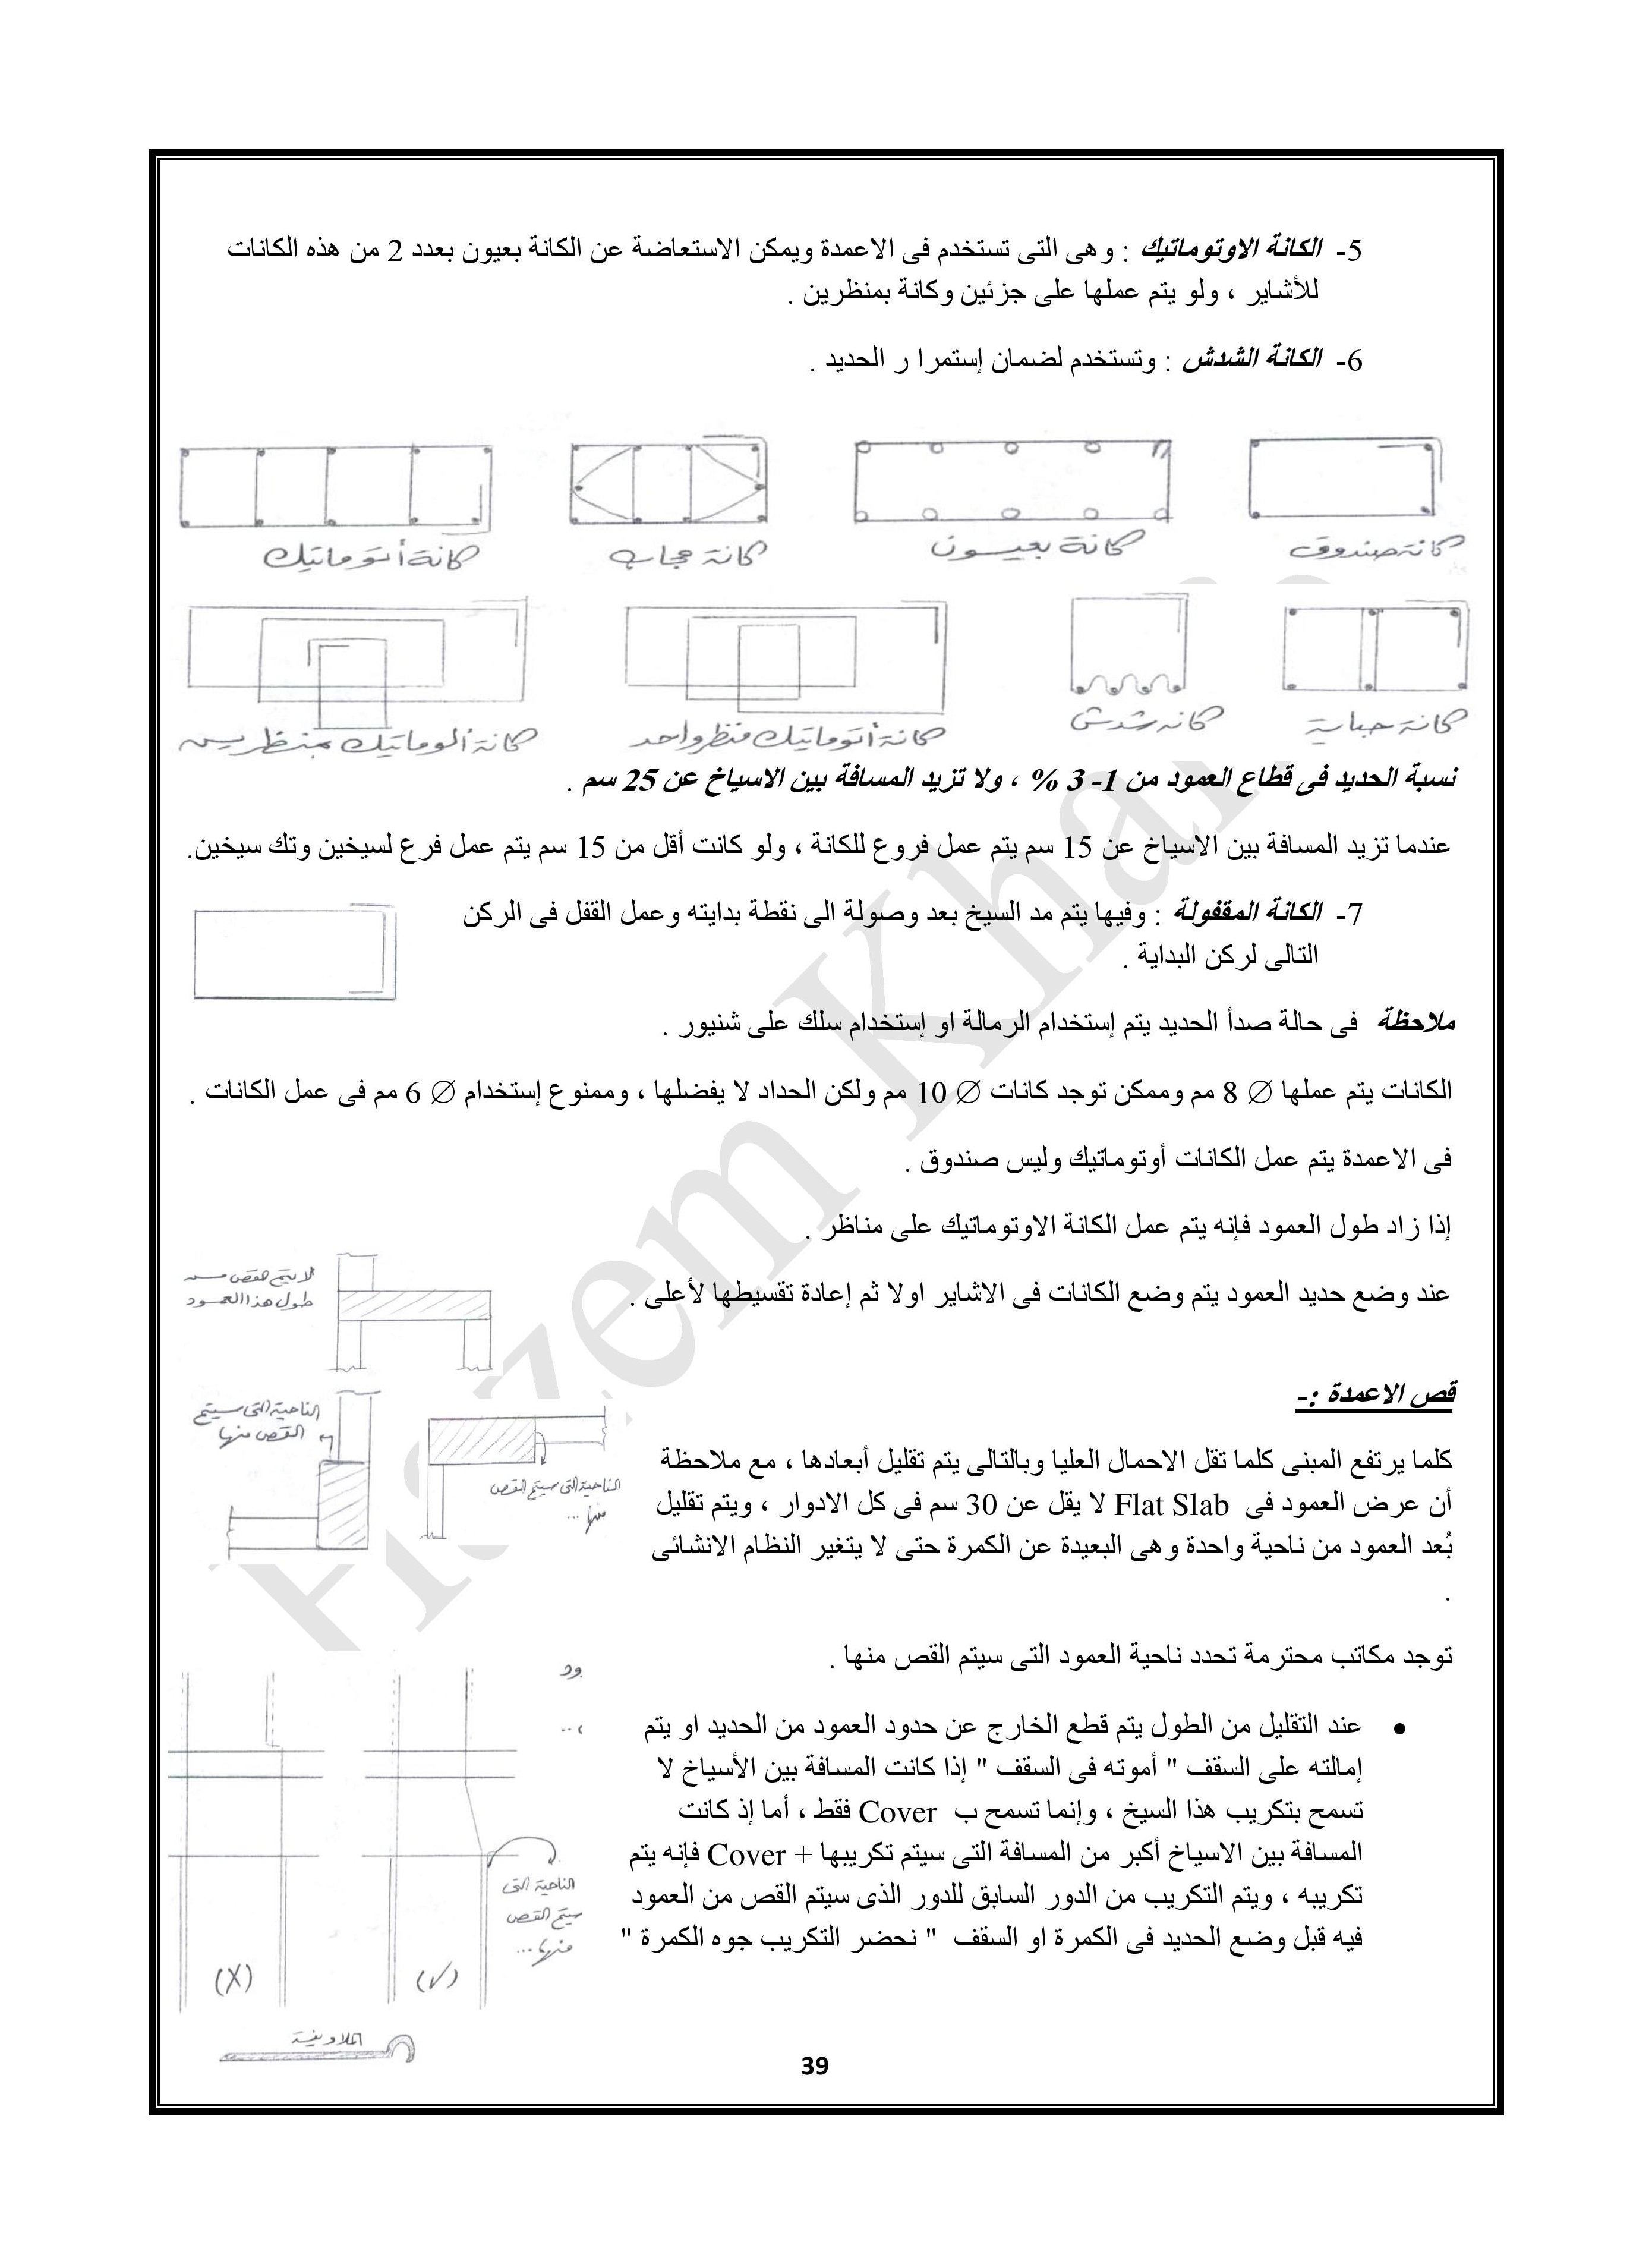 5- الكانة الاوتوماتيك : وهى التى تستخدم فى الاعمدة ويمكن الاستعاضة عن الكانة بعيون بعدد 2 من هذه الكانات
للأشاير ، ولو يتم عملها على جزئين وكانة بمنظرين .
6- الكانة الشدش : وتستخدم لضمان إستمرا ر الحديد .
كانة صندوق
كانة بعيون
كانة حجاب
كانة أتوماتيك
كانة حباية
كانه شدش
كانة أتوماتيك منظر واحد
كانة ألوماتيك بمنظرين
نسبة الحديد فى قطاع العمود من 1- 3 % ، ولا تزيد المسافة بين الاسياخ عن 25 سم .
عندما تزيد المسافة بين الاسياخ عن 15 سم يتم عمل فروع للكانة ، ولو كانت أقل من 15 سم يتم عمل فرع لسيخين وتك سيخين.
7- الكانة المقفولة : وفيها يتم مد السيخ بعد وصولة الى نقطة بدايته وعمل القفل فى الركن
التالى لركن البداية .
ملاحظة فى حالة صدأ الحديد يتم إستخدام الرمالة او إستخدام سلك على شنيور .
الكانات يتم عملها ∅ 8 مم وممكن توجد كانات ∅ 10 مم ولكن الحداد لا يفضلها ، وممنوع إستخدام ∅ 6 مم فى عمل الكانات .
فى الاعمدة يتم عمل الكانات أوتوماتيك وليس صندوق .
إذا زاد طول العمود فإنه يتم عمل الكانة الاوتوماتيك على مناظر .
عند وضع حديد العمود يتم وضع الكانات فى الاشاير اولا ثم إعادة تقسيطها لأعلى .
لا يتم القص من
طول هذا العمود
قص الاعمدة :-
الناحية التى سيتم
القص منها
الناحية التى سيتم القص
منها ...
كلما يرتفع المبنى كلما تقل الاحمال العليا وبالتالى يتم تقليل أبعادها ، مع ملاحظة
أن عرض العمود فى Flat Slab لا يقل عن 30 سم فى كل الادوار ، ويتم تقليل
بُعد العمود من ناحية واحدة وهى البعيدة عن الكمرة حتى لا يتغير النظام الانشائى
.
توجد مكاتب محترمة تحدد ناحية العمود التى سيتم القص منها .
ود
• عند التقليل من الطول يتم قطع الخارج عن حدود العمود من الحديد او يتم
إمالته على السقف " أموته فى السقف " إذا كانت المسافة بين الأسياخ لا
تسمح بتكريب هذا السيخ ، وإنما تسمح ب Cover فقط ، أما إذ كانت
المسافة بين الاسياخ أكبر من المسافة التى سيتم تكريبها + Cover فإنه يتم
تكريبه ، ويتم التكريب من الدور السابق للدور الذى سيتم القص من العمود
فيه قبل وضع الحديد فى الكمرة او السقف " نحضر التكريب جوه الكمرة "
الناحية التى
سيتم القص
منها ...
(√)
(X)
الملاوينة
39
Hazem Khal